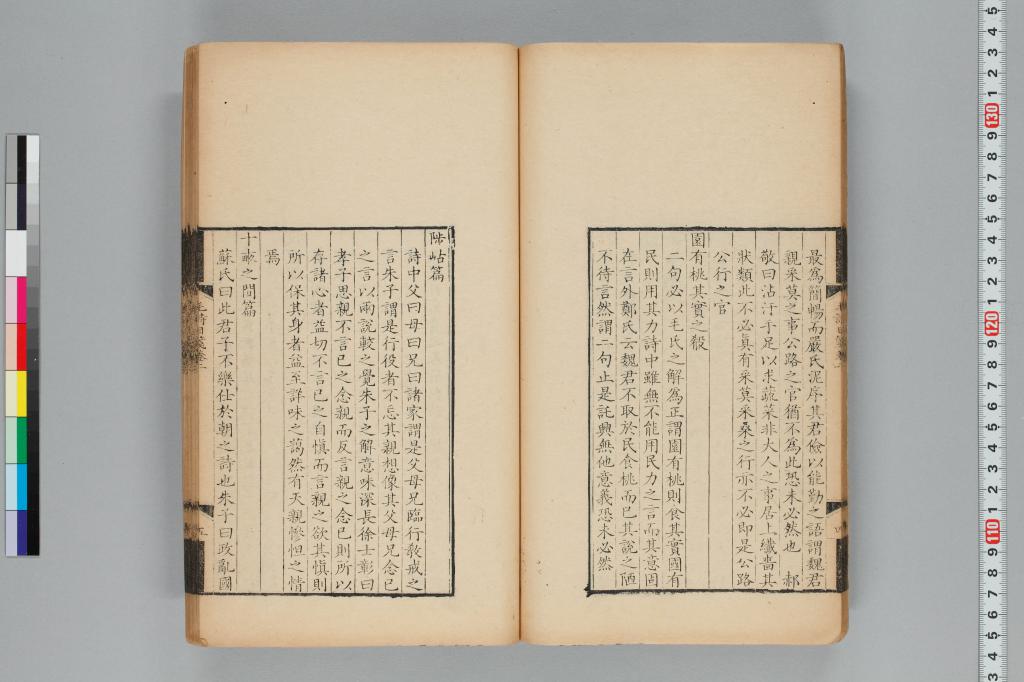 最爲簡暢而嚴氏泥序其君儉以能勤之語謂魏君
親采莫之事公路之官猶不爲此恐未必然也　郝
敬曰沾汙手足以求蔬菜非大人之事居上纖嗇其
狀類此不必眞有采莫采桑之行亦不必即是公路
公行之官
園有桃其實之殽
二句必以毛氏之解爲正謂園有桃則食其實國有
民則用其力詩中雖無不能用民力之言而其意固
在言外鄭氏云魏君不取於民食桃而已其說之陋
不待言然謂二句止是託興無他意義恐未必然
陟岵篇
詩中父曰母曰兄曰諸家謂是父母兄臨行敎戒之
言朱子謂是行役者不忘其親想像其父母兄念已
之言以兩說較之覺朱子之解意味深長徐士彰曰
孝子思親不言已之念親而反言親之念已則所以
存諸心者益切不言已之自愼而言親之欲其愼則
所以保其身者益至詳味之藹然有天親慘怛之情
焉
十畝之間篇
蘇氏曰此君子不樂仕於朝之詩也朱子曰政亂國
四
五
5 4 3 2 1 130 9 8 7 6 5 4 3 2 1 120 9 8 7 6 5 4 3 2 1 110 9 8 7 6 5 4 3